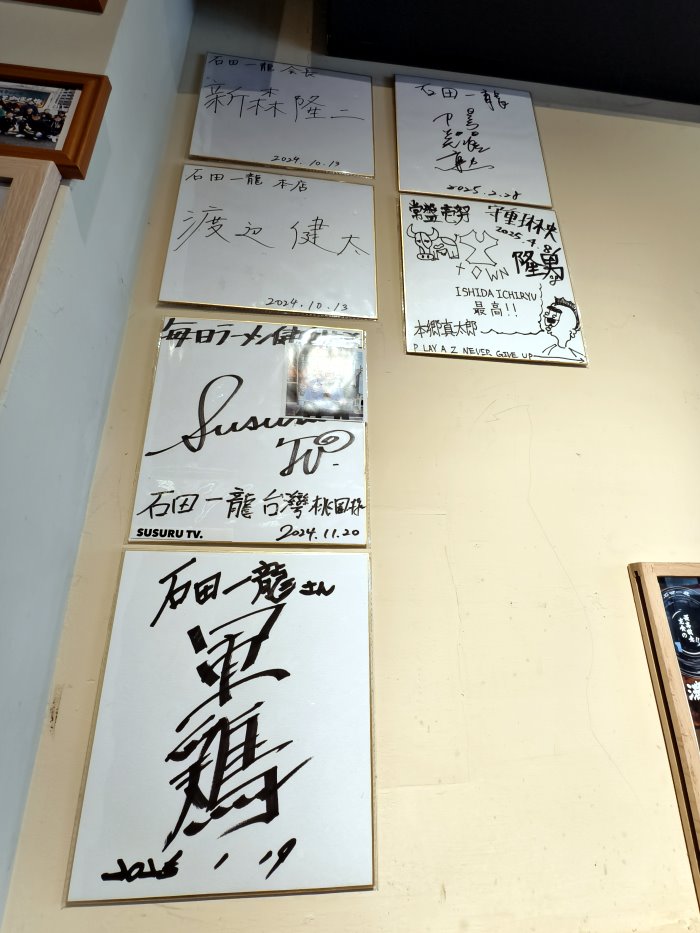 石田一龍 会長
新森隆二
2024.10.13
石田一龍 本店
渡辺 健太
2024.10.13
毎日ラーメン健
Susuru
TV.
石田一龍 台湾桃園
SUSURU TV.
2024.11.20
石田一龍さん
軍鶏
2025 1 19
石田一龍
2025.2.28
常盤
2025.4.8
TOWN
隆勇
ISHIDA ICHIRYU
最高!!
本郷真太郎
PLAY A Z NEVER GIVE UP